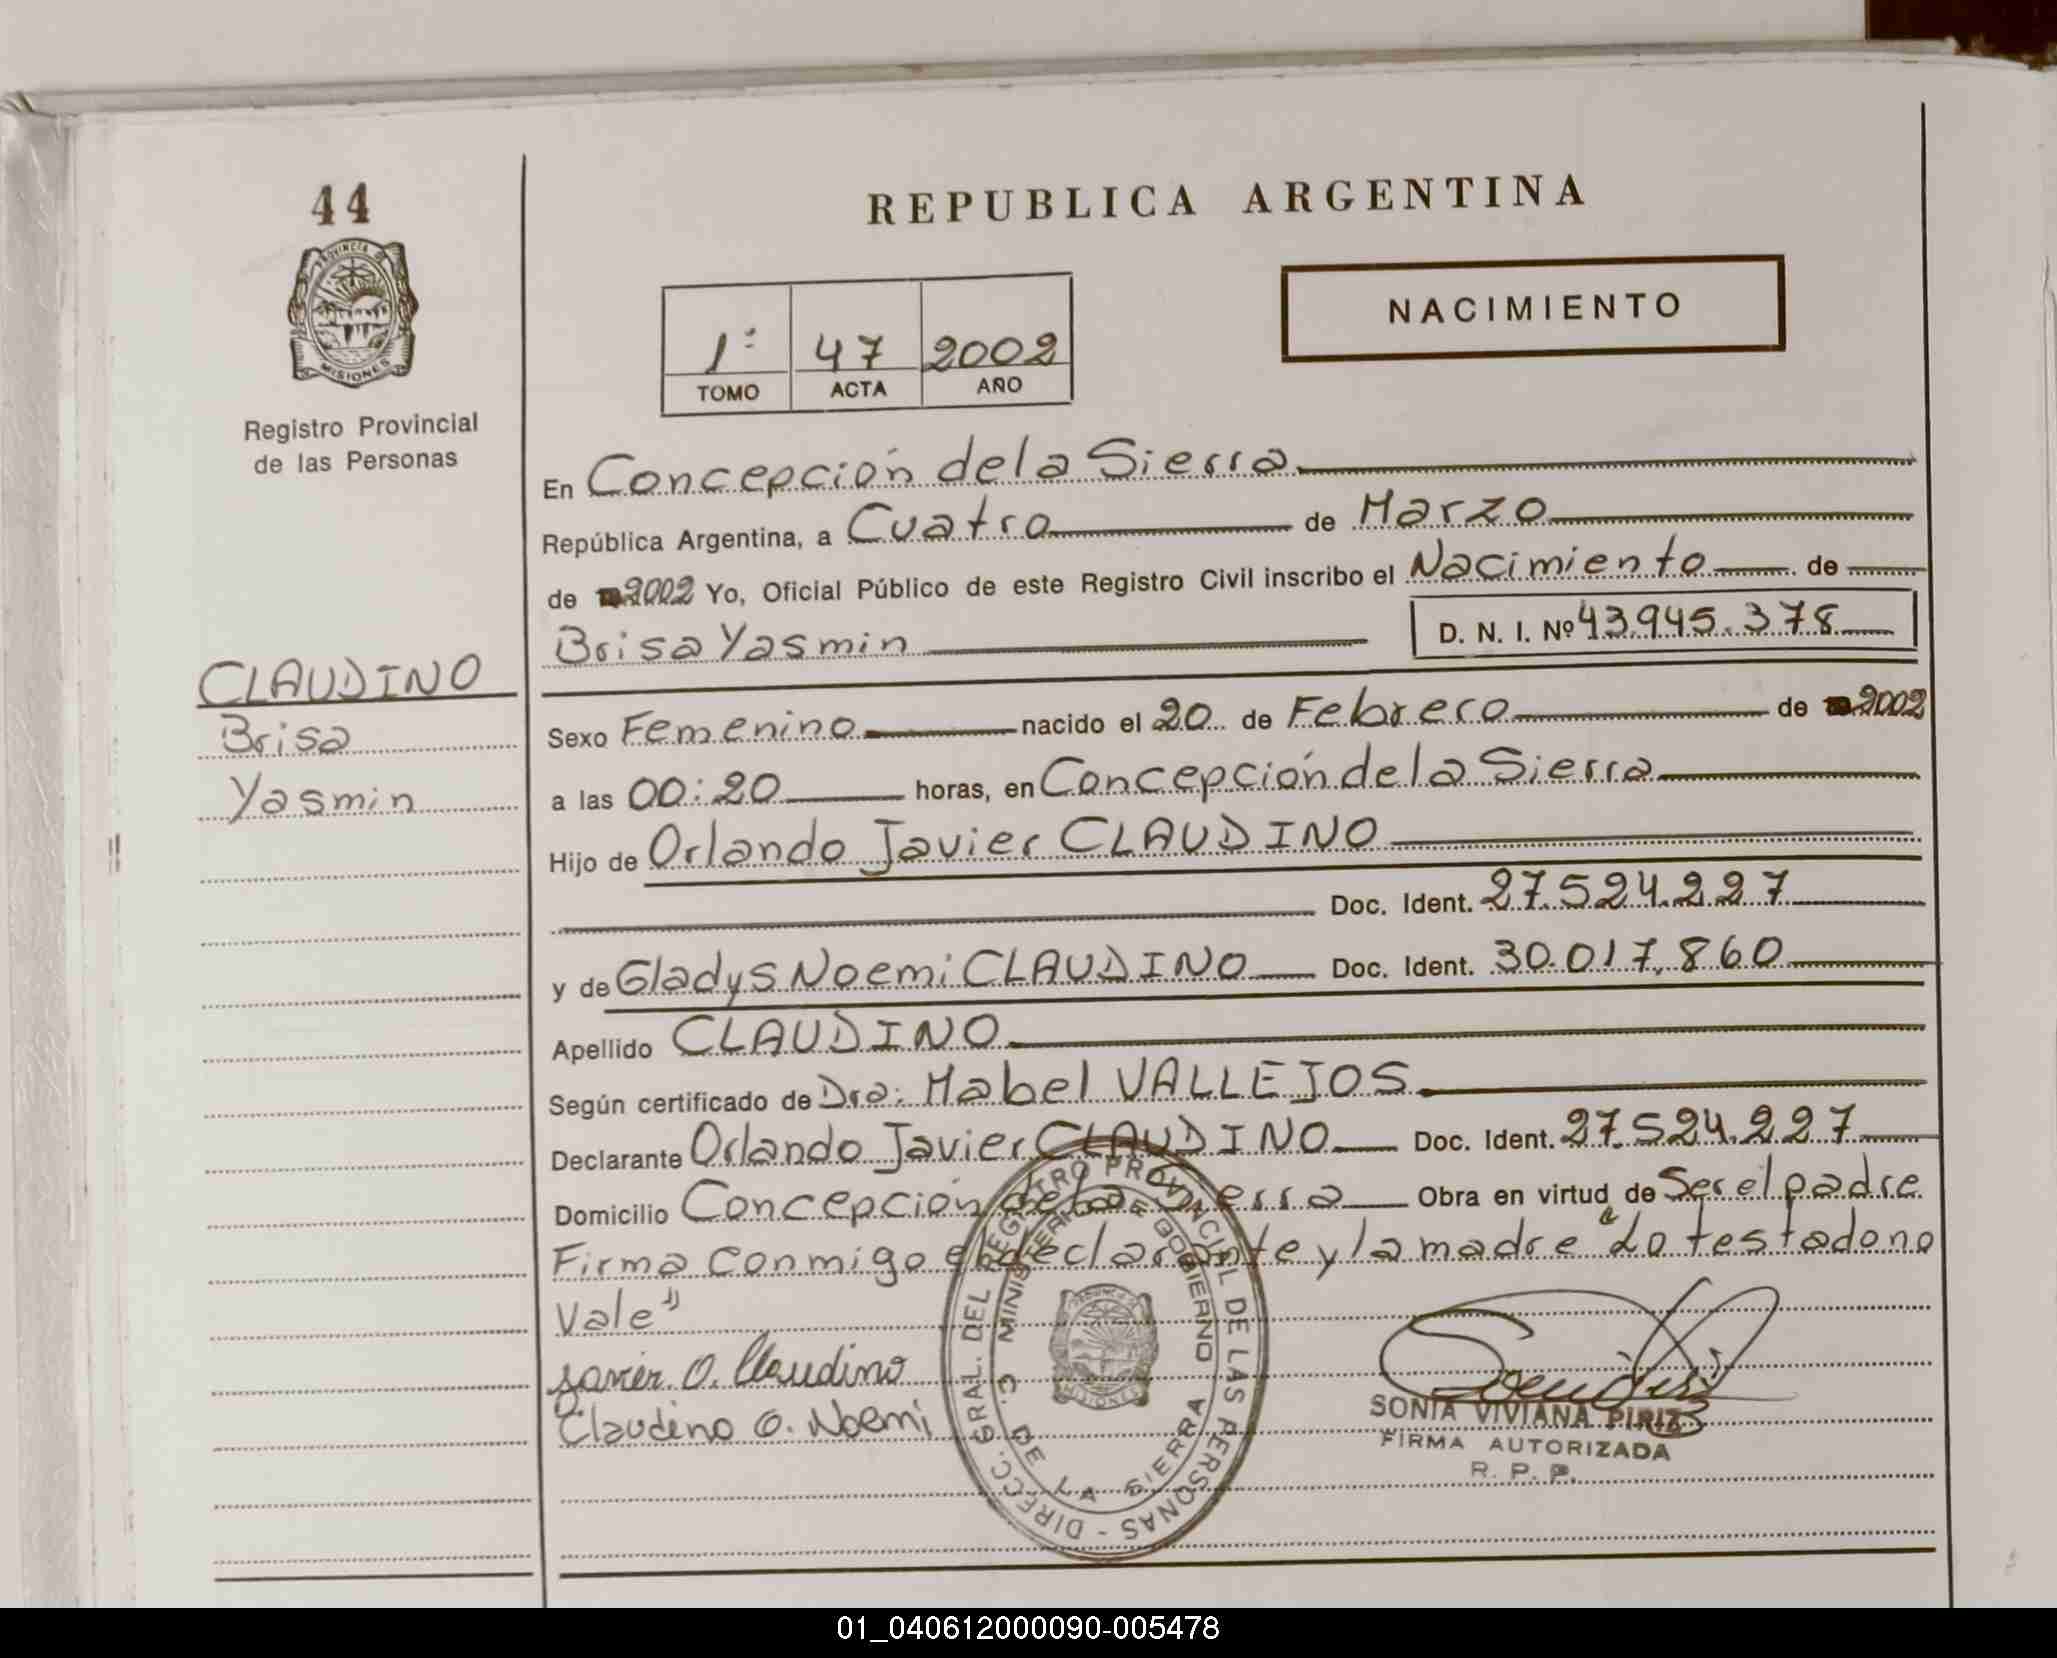 44
PROVINCIA DE
MISIONES
Registro Provincial
de las Personas
REPUBLICA ARGENTINA
NACIMIENTO
1º 47 2002
TOMO ACTA AÑO
En Concepción de la Sierra
República Argentina, a Cuatro de Marzo
de 2002 Yo, Oficial Público de este Registro Civil inscribo el Nacimiento de
Brisa Yasmin D. N. I. Nº 43.945.378
CLAUDINO
Brisa
Yasmin
Sexo Femenino nacido el 20 de Febrero de 2002
a las 00:20 horas, en Concepción de la Sierra
Hijo de Orlando Javier CLAUDINO
Doc. Ident. 27.524.227
y de Gladys Noemi CLAUDINO Doc. Ident. 30.017.860
Apellido CLAUDINO
Según certificado de Dra: Mabel VALLEJOS
Declarante Orlando Javier CLAUDINO Doc. Ident. 27.524.227
Domicilio Concepción de la Sierra Obra en virtud de Ser el padre
Firma conmigo el declarante y la madre "Lo testado no
Vale"
Javier O. Claudino
Claudino G. Noemi
DIRECC. GRAL. DEL REGISTRO PROVINCIAL DE LAS PERSONAS -
MINISTERIO DE GOBIERNO
C. DE LA SIERRA
PROVINCIA
MISIONES
SONIA VIVIANA PIRIZ
FIRMA AUTORIZADA
R. P. P.
01_040612000090-005478